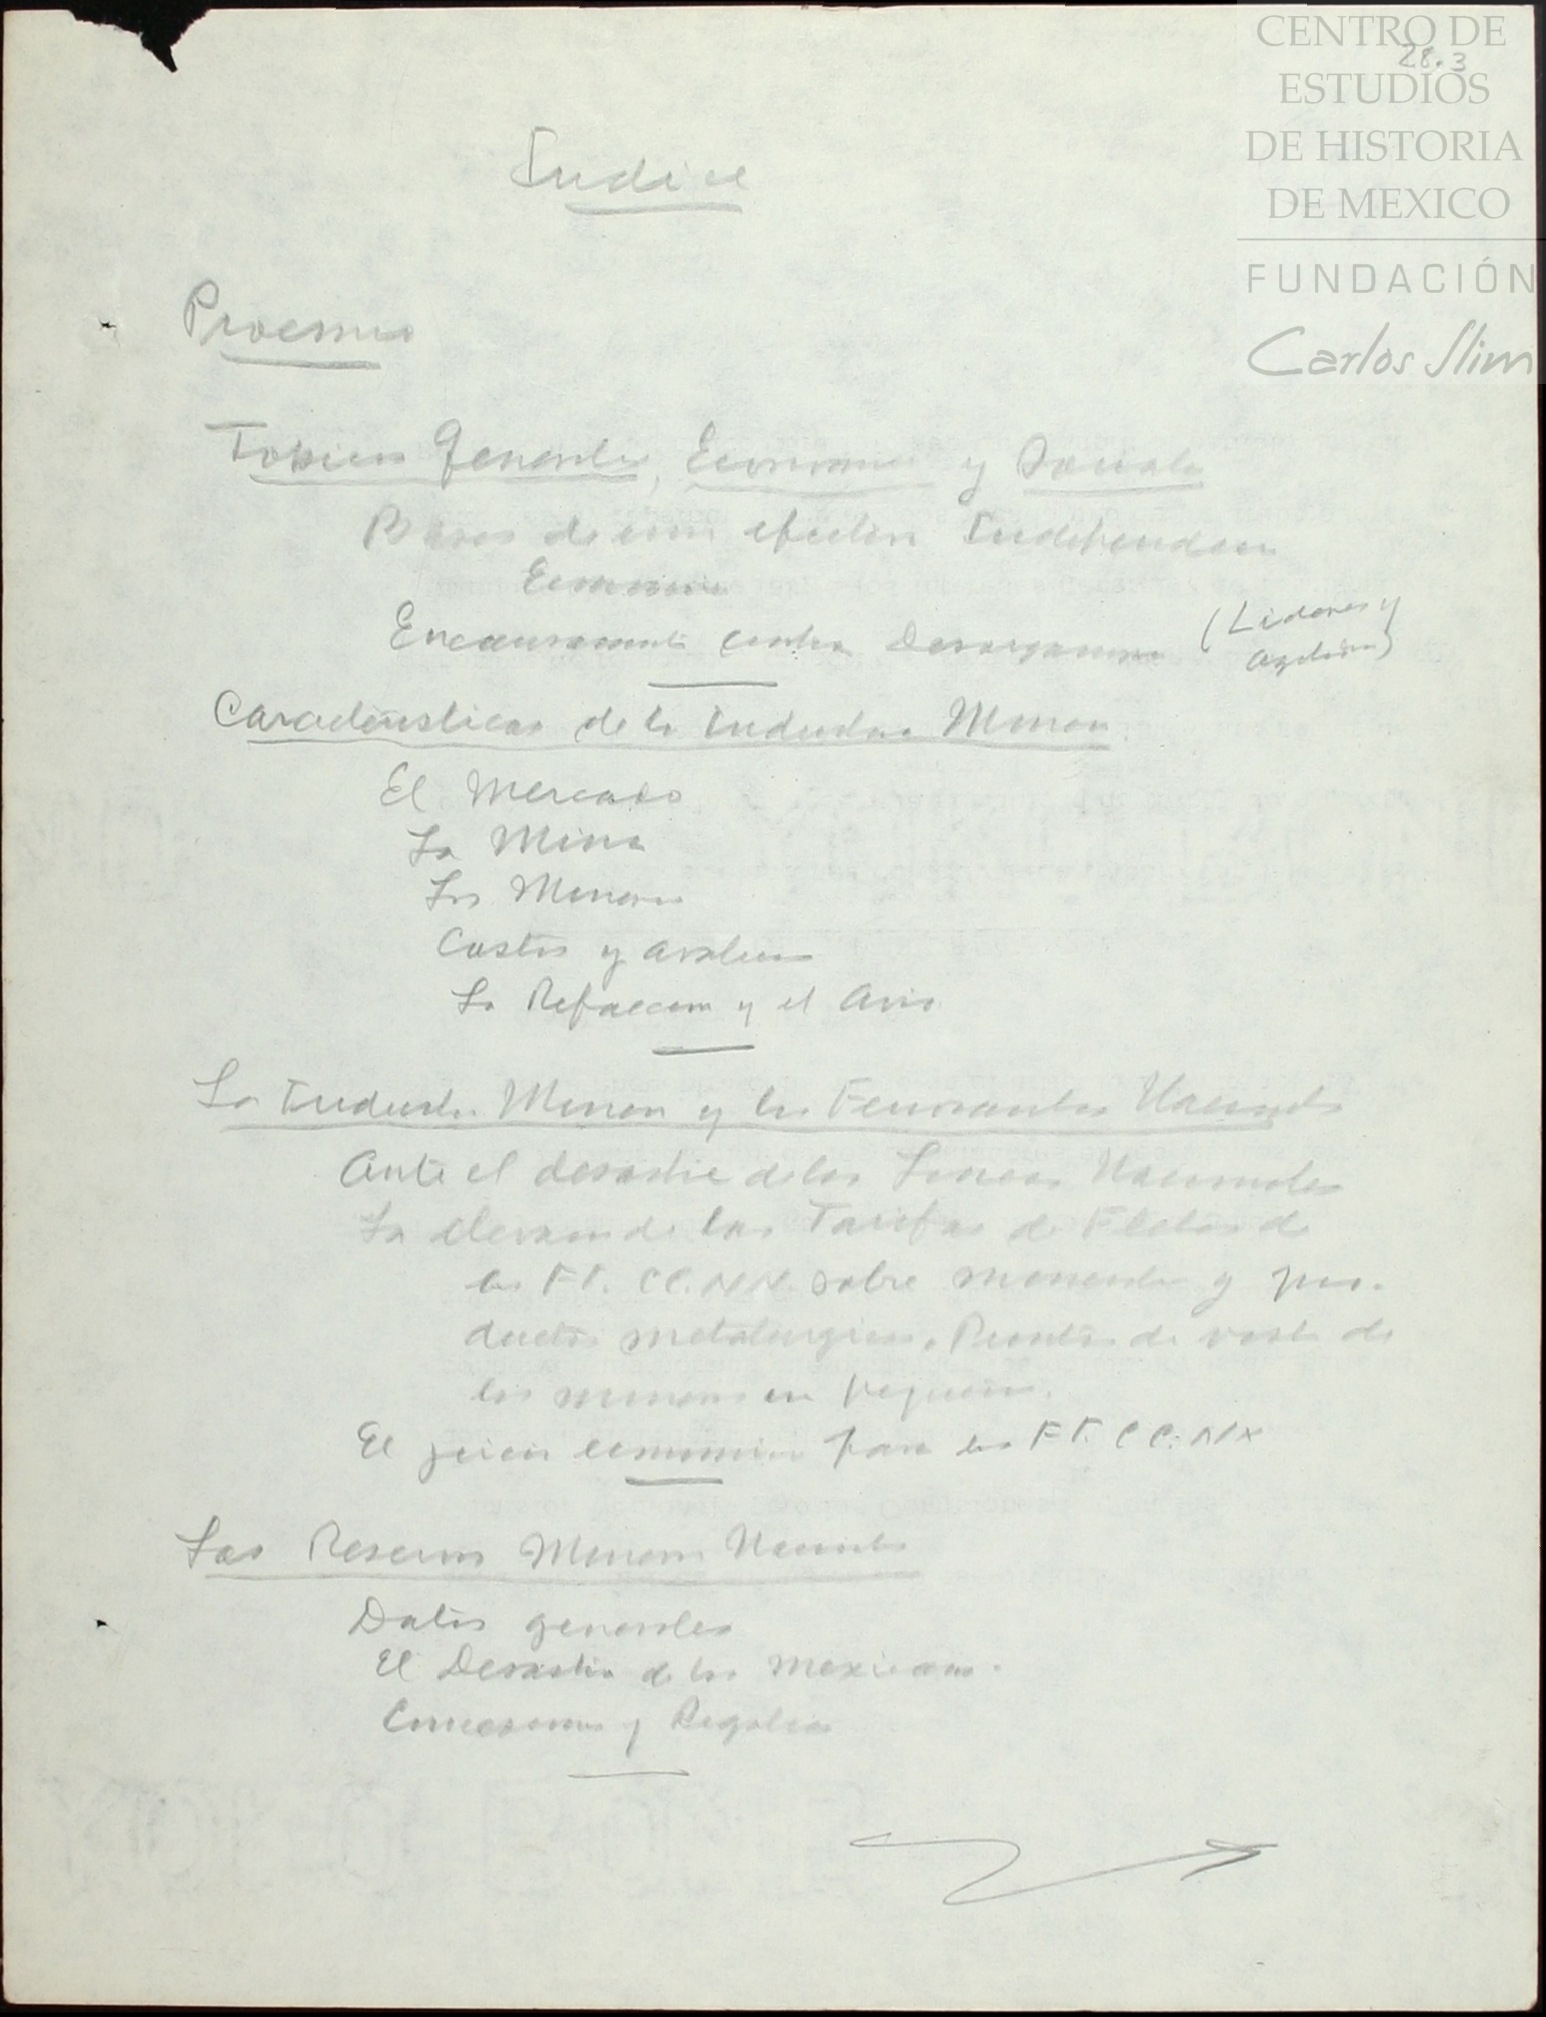 CENTRO DE
ESTUDIOS
DE HISTORIA
DE MEXICO
FUNDACIÓN
Carlos Slim
28.3
Indice
Proemio
Topicos Generales, Economicos y Sociales
Bases de una efectiva Independencia
Economica
Encauzamiento contra Desorganizacion (Lideres y
Agitadores)
Caracteristicas de la Industria Minera
El Mercado
La Mina
Los Mineros
Costos y avaluos
La Refaccion y el Avio
La Industria Minera y los Ferrocarriles Nacionales
Ante el desastre de las Lineas Nacionales
La elevacion de las Tarifas de Fletes de
los FF. CC. NN. sobre minerales y pro-
ductos metalurgicos. Puntos de vista de
los mineros en pequeño.
El juicio economico para los FF. CC. NN
Las Reservas Mineras Nacionales
Datos generales
El Desastre de los Mexicanos.
Concesiones y Regalias